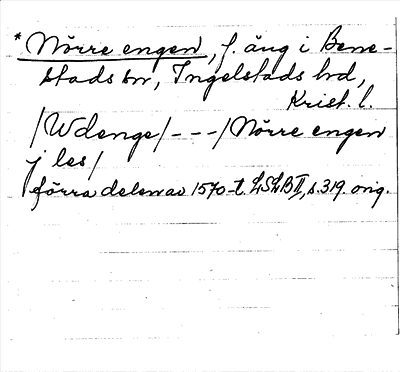 * Nörre engen, f. äng i Bene-
stads sn, Ingelstads hd,
Krist. l.
/Wdenge/---/Nörre engen
j les/
förra delen av 1570-t. LSLB II, s. 319. orig.